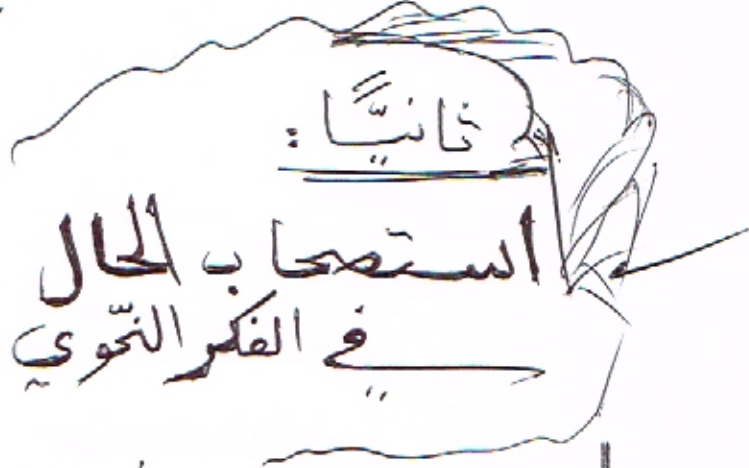 ثانيًّا :
استصحاب الحال
في الفكر النّحوي